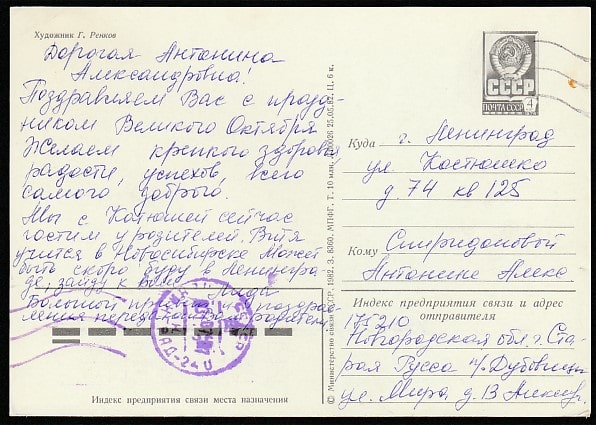 Художник Г. Ренков
Дорогая Антонина
Александровна!
Поздравляем Вас с празд-
ником Великого Октября
Желаем крепкого здоровья,
радости, успехов, всего
самого доброго.
Мы с Катюшей сейчас
гостим у родителей. Витя
учится в Новосибирске Может
быть скоро буду в Ленингра-
де, зайду к Вам
Большой привет и поздрав-
ления передавайте родителям.
Индекс предприятия связи места назначения
© Министерство связи СССР. 1982. З. 6360. МПФГ. Т. 10 млн. 25.05.82. Ц. 6 к.
СССР
ПОЧТА СССР 4
Куда г. Ленинград
ул. Костюшко
д. 74 кв 125
Кому Спиридоновой
Антонине Алекс
Индекс предприятия связи и адрес
отправителя
175210
Новгородская обл. г. Ста-
рая Русса п/ Дубовицы
ул. Мира д. 13